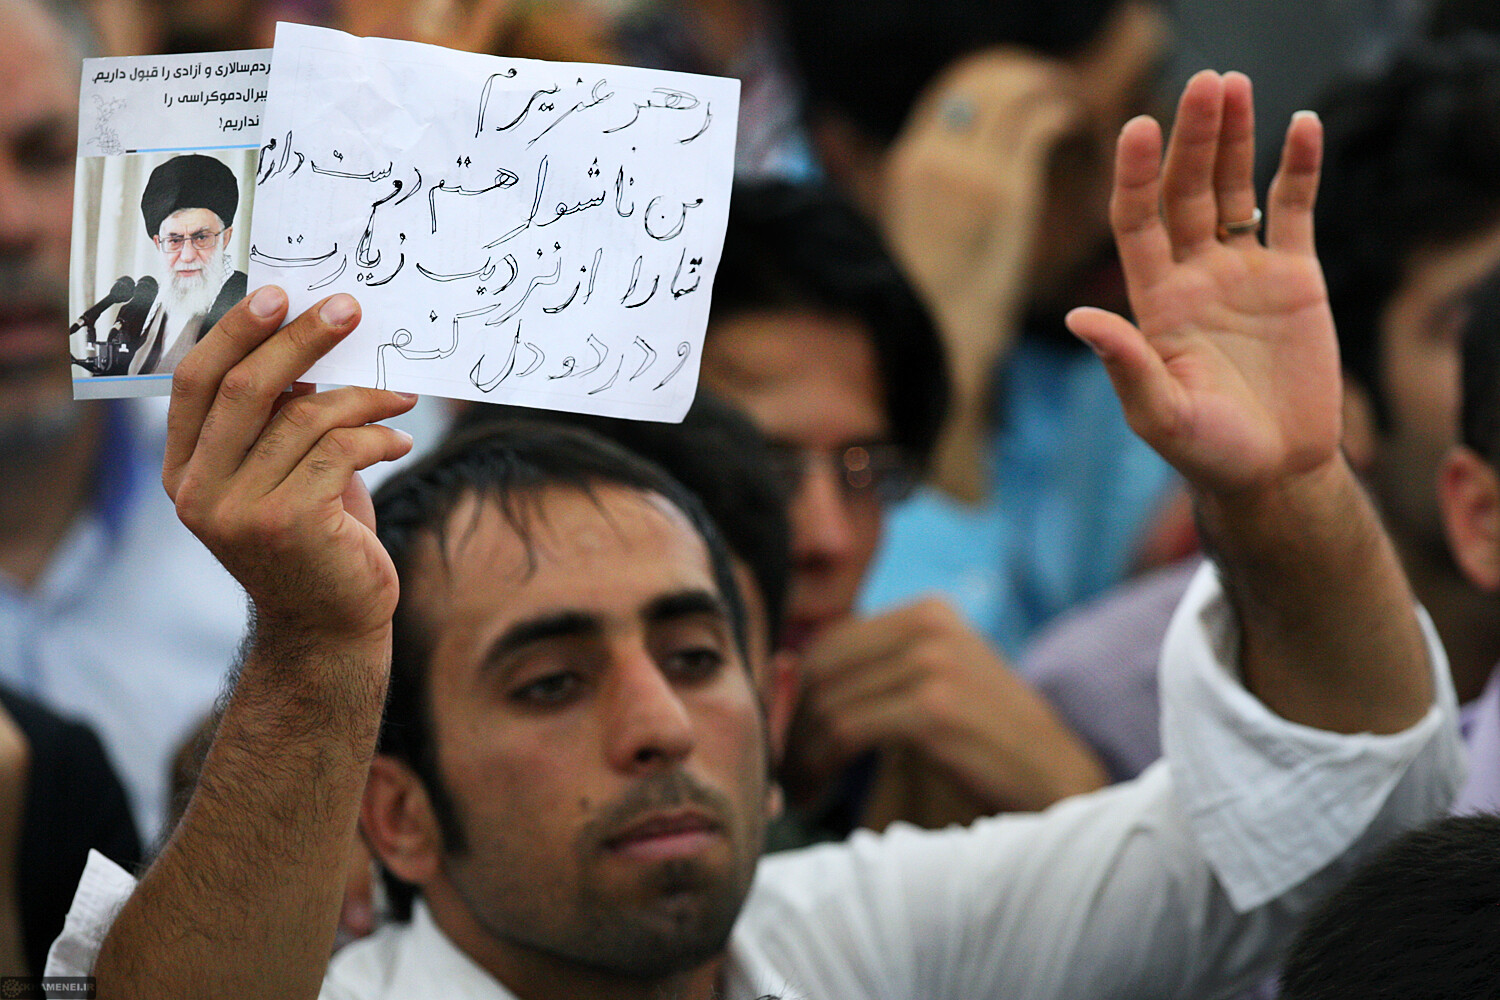 ردم‌سالاری و آزادی را قبول داریم،
یبرال‌دموکراسی را
نداریم!
رهبر عزیزم
من ناشنوا هستم دوست دارم
شما را از نزدیک زیارت
و درد و دل کنم
KHAMENEI.IR